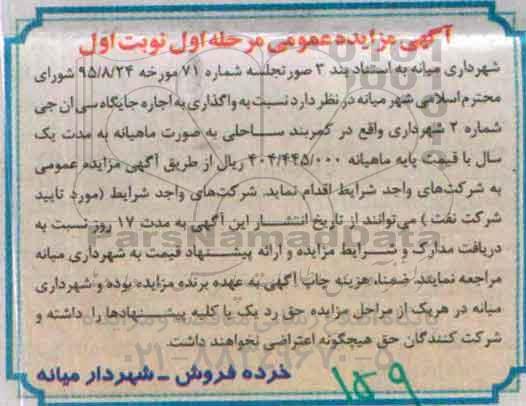 آگهی مزایده عمومی مرحله اول نوبت اول
شهرداری میانه به استناد بند ۳ صورتجلسه شماره ۷۱ مورخه ۹۵/۸/۲۴ شورای
محترم اسلامی شهر میانه در نظر دارد نسبت به واگذاری به اجاره جایگاه سی ان جی
شماره ۲ شهرداری واقع در کمربند ساحلی به صورت ماهیانه به مدت یک
سال با قیمت پایه ماهیانه ۴۰۴/۴۴۵/۰۰۰ ریال از طریق آگهی مزایده عمومی
به شرکت‌های واجد شرایط اقدام نماید. شرکت‌های واجد شرایط (مورد تایید
شرکت نفت) می‌توانند از تاریخ انتشار این آگهی به مدت ۱۷ روز نسبت به
دریافت مدارک و شرایط مزایده و ارائه پیشنهاد قیمت به شهرداری میانه
مراجعه نمایند. ضمنا، هزینه چاپ آگهی به عهده برنده مزایده بوده و شهرداری
میانه در هریک از مراحل مزایده حق رد یک یا کلیه پیشنهادها را داشته و
شرکت کنندگان حق هیچگونه اعتراضی نخواهند داشت.
خرده فروش - شهردار میانه
۱۵۹
ParsNamadData
۰۲۱-۸۸۳۴۹۶۷۰-۵